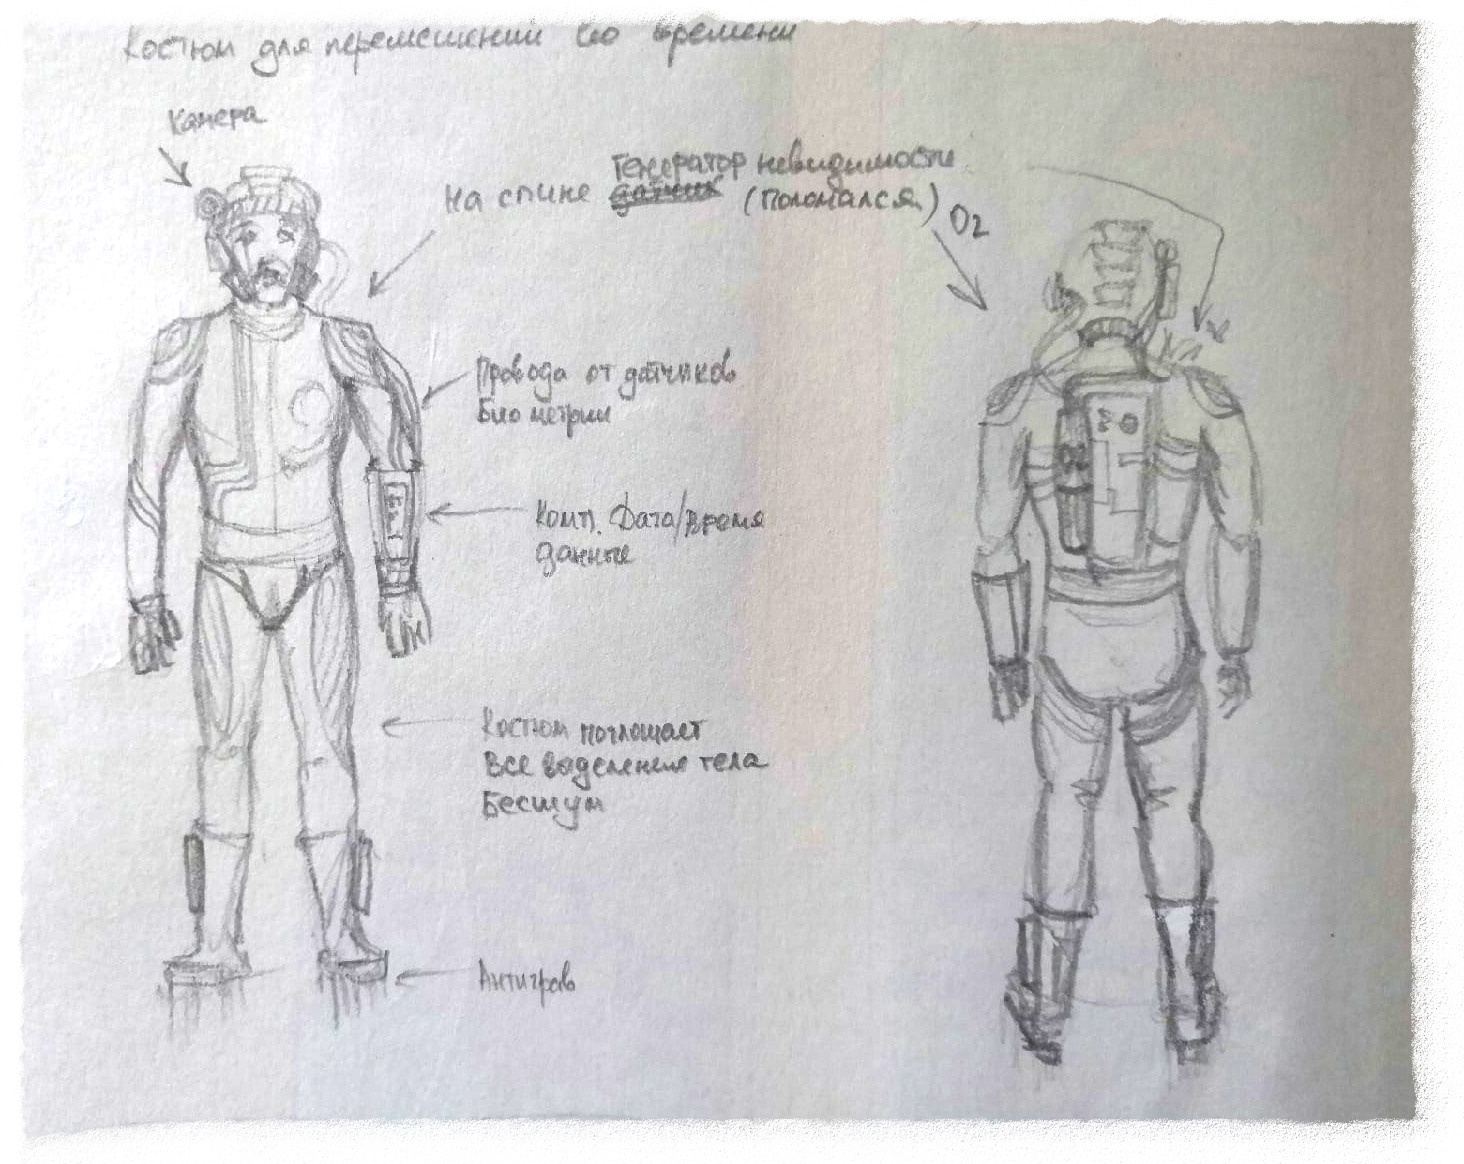 Костюм для перемещений во времени
Камера
Генератор невидимости
На спине датчик (поломался.)
O2
Провода от датчиков
Био метрии
Комп. Дата/время
данные
Костюм поглощает
Все выделения тела
Бесшум
Антиграв